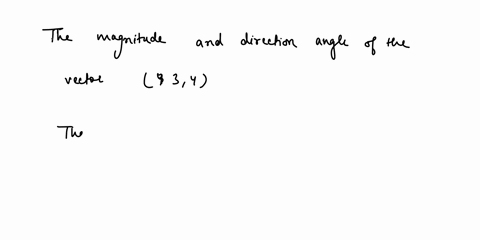 The magnitude and direction angle of the
vector (3,4)
The